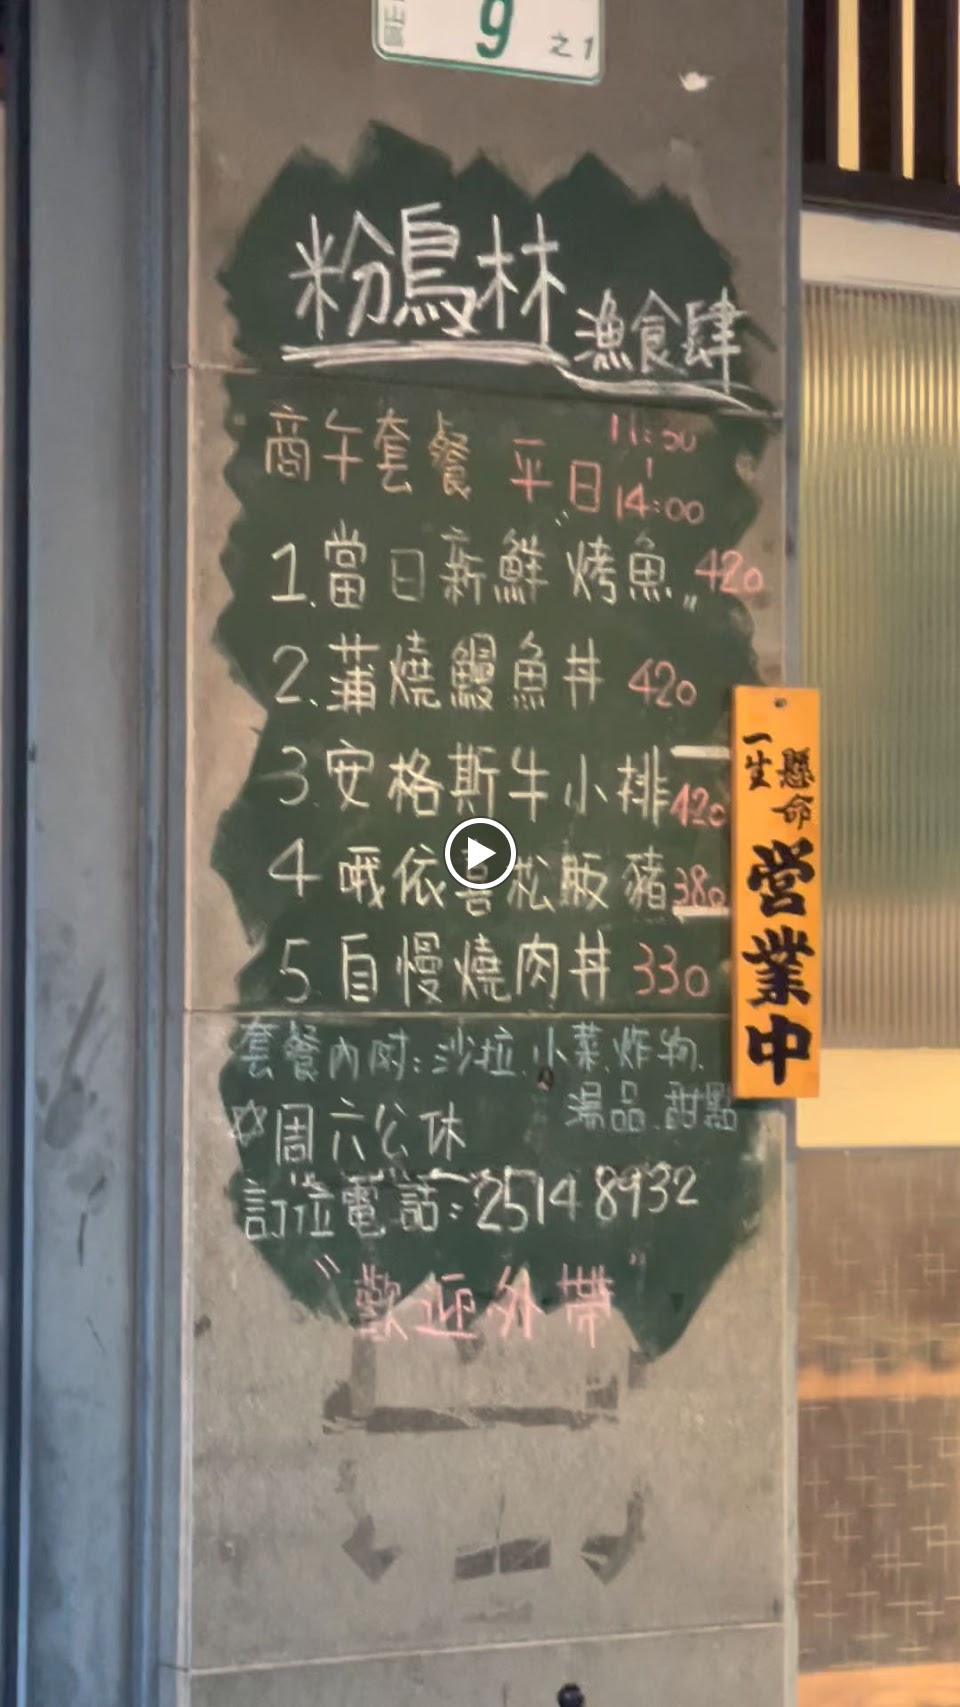 山區 9 之1
粉鳥林 漁食肆
商午套餐 平日 11:30
|
14:00
1.當日新鮮烤魚〃 420
2.蒲燒鰻魚丼 420
3.安格斯牛小排 420
4 哦依喜松販豬 380
5 自慢燒肉丼 330
套餐內附:沙拉.小菜.炸物.
湯品.甜點
✡周六公休
訂位電話:2514 8932
"歡迎外帶"
一生懸命
営業中